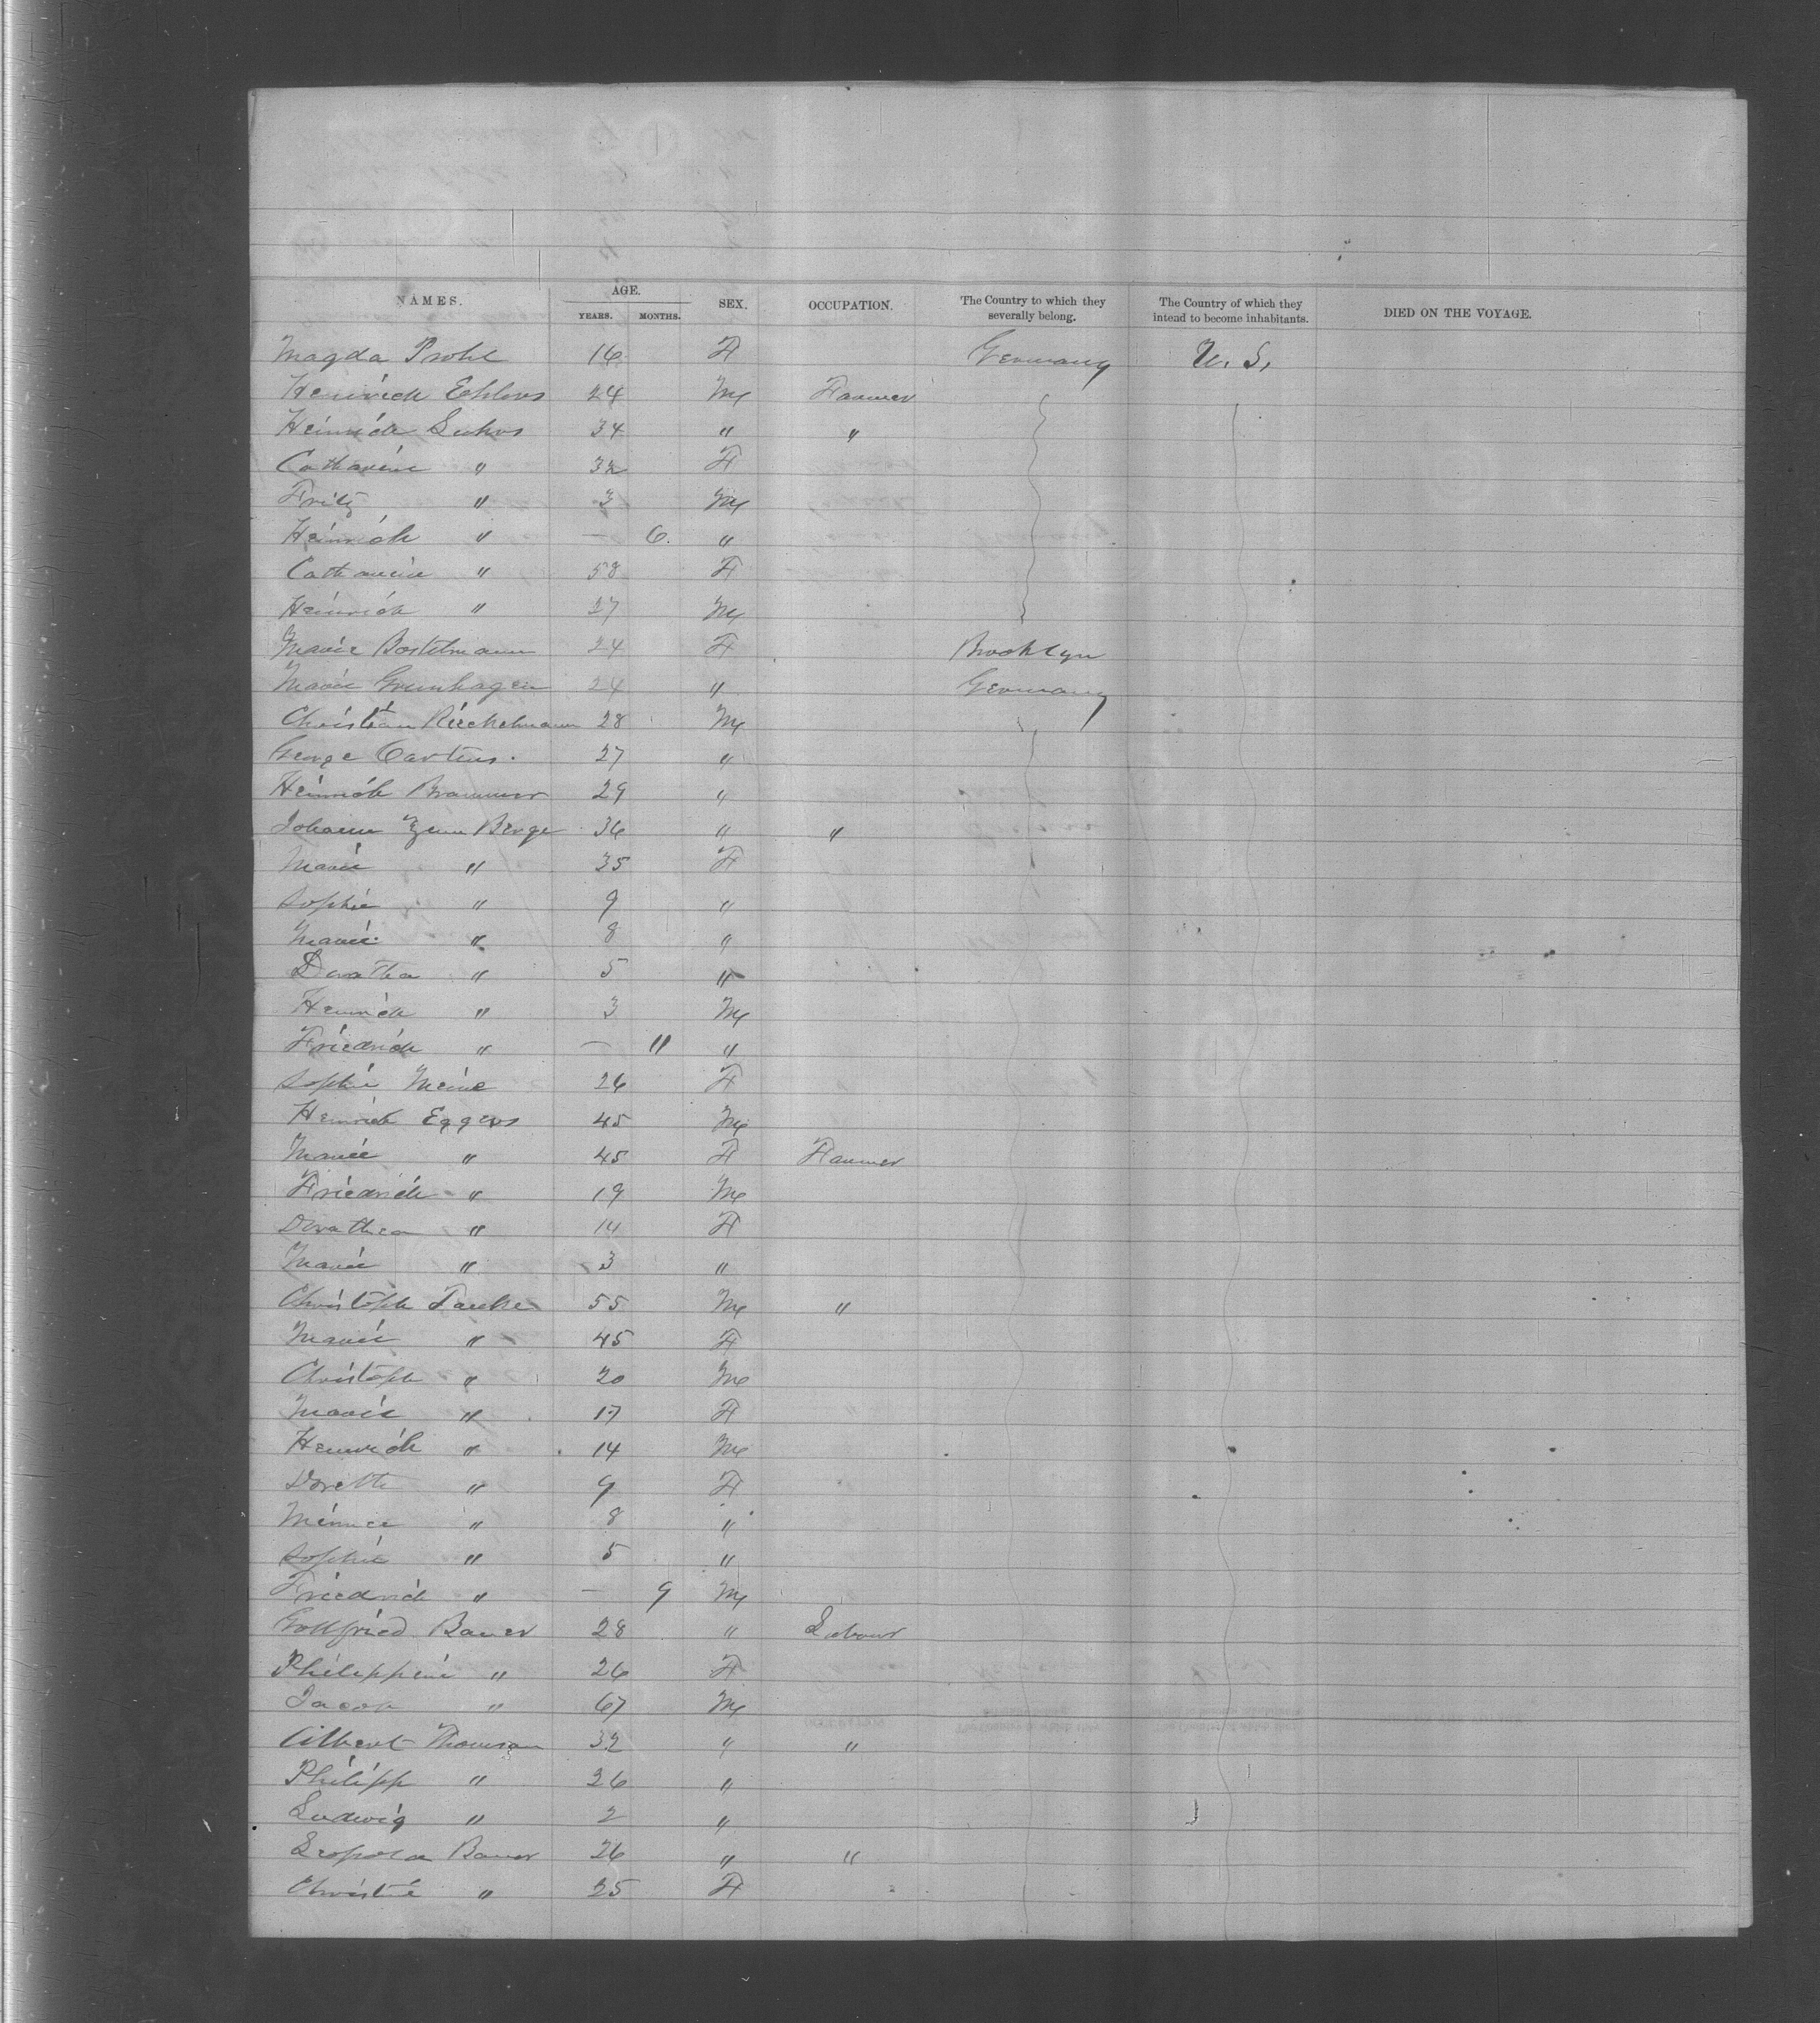 NAMES. AGE. SEX. OCCUPATION. The Country to which they severally belong. The Country of which they intead to become inhabitants. DIED ON THE VOYAGE.
YEARS. MONTHS.
Magda Prohl 16 F Germany U. S.
Heinrich Ehlers 24 M Farmer
Heinrich Luhrs 34 " "
Catharine " 32 F
Fritz " 3 M
Heinrich " — 6. "
Catharine " 58 F
Heinrich " 27 M
Marie Bostelmann 24 F Brooklyn
Marie Grunhagen 24 " Germany
Christian Rieckelmann 28 M
George Carstens. 27 "
Heinrich Brammer 29 "
Johann Zum Berge 36 " "
Marie " 35 F
Sophie " 9 "
Marie " 8 "
Dorathea " 5 "
Heinrich " 3 M
Friedrich " — 11 "
Sophie Meine 26 F
Heinrich Eggers 45 M
Marie " 45 F Farmer
Friedrich " 19 M
Dorathea " 14 F
Marie " 3 "
Christoph 55 M "
Marie " 45 F
Christoph " 20 M
Marie " 17 F
Heinrich " 14 M
Dorette " 9 F
" 8 "
Sophie " 5 "
Friedrich " — 9 M
Gottfried Bauer 28 " Labour
Philippine " 26 F
Jacob " 67 M
Albert 32 " "
Philipp " 26 "
Ludwig " 2 "
Leopold Bauer 26 " "
Christie " 25 F